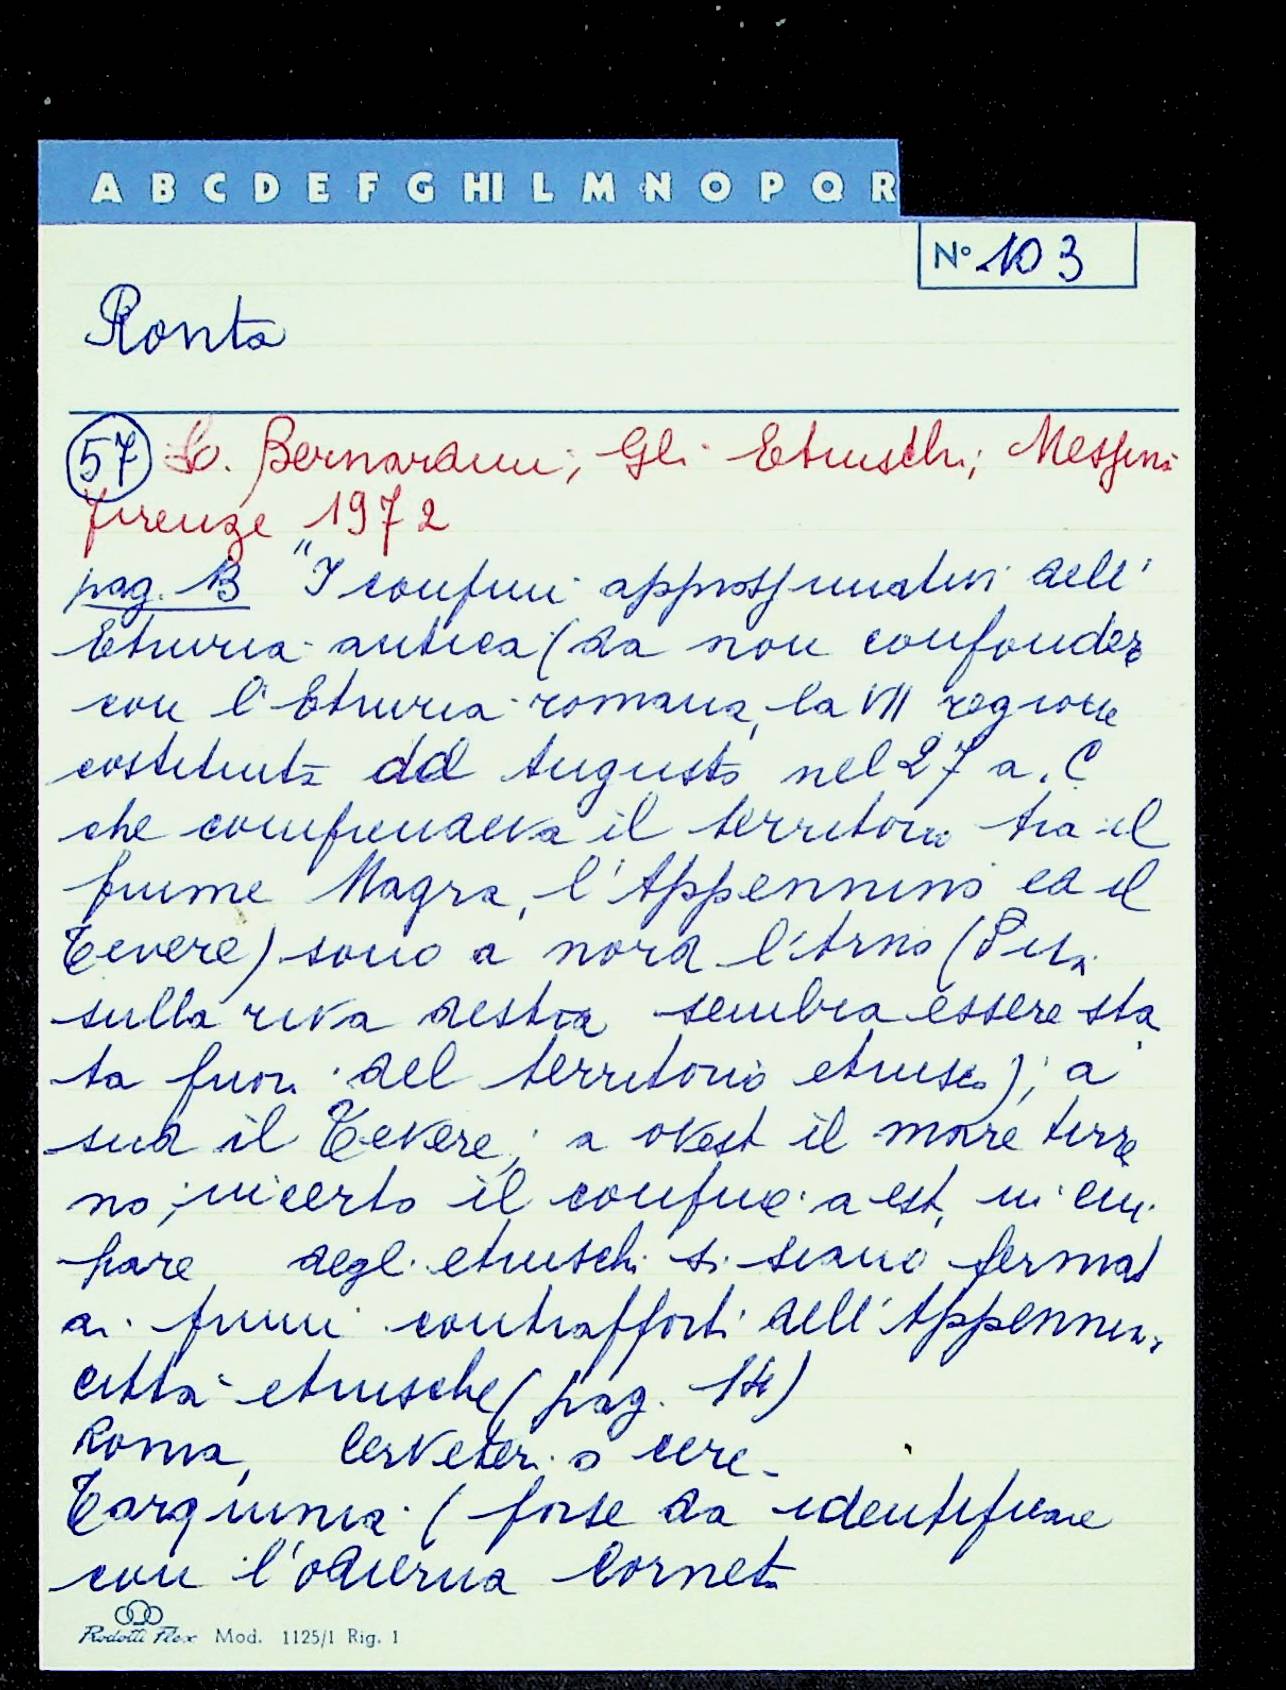 A B C D E F G HI L M N O P Q R
N° 103
Ronta
57 L. Bernardini; Gli Etruschi; Messini
Firenze 1972
pag. 13 "I confini approssimativi dell'
Etruria antica (da non confondere
con l'Etruria romana, la VII regione
costituita dal Augusto nel 27 a. C
che comprendeva il territorio tra il
fiume Magra, l'Appennino ed il
Tevere) sono a nord l'Arno (Pisa
sulla riva destra sembra essere sta
ta fuori del territorio etrusco); a
sud il Tevere; a ovest il mare tirre
no; incerto il confine a est, in cui
pare degli etruschi si siano fermati
ai primi contrafforti dell'Appennino,
città etrusche (pag. 14)
Roma, Cerveteri o cere -
Tarquinia (forse da identificare
con l'odierna Corneto
Rodotti Flex Mod. 1125/1 Rig. 1